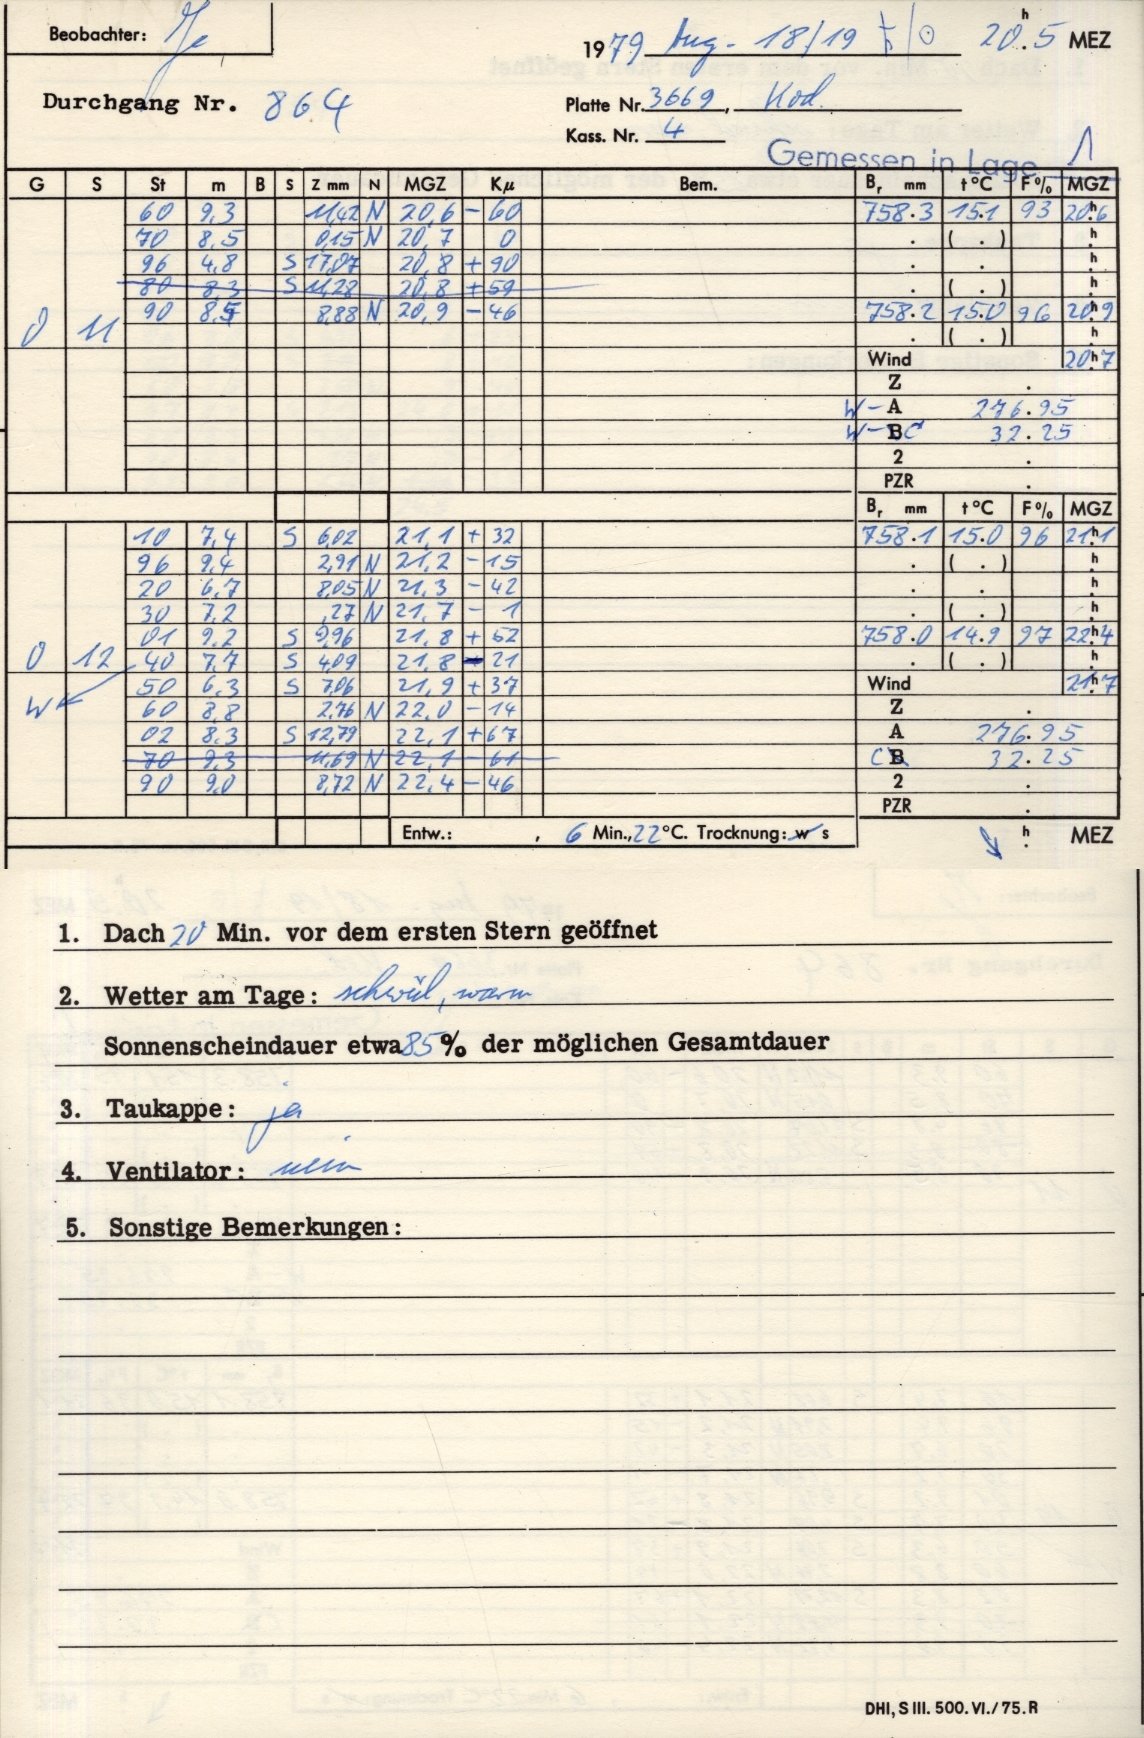 Beobachter:
1979 Aug. 18/19 ♄/☉ 20h.5 MEZ
Durchgang Nr. 864
Platte Nr. 3669, Kod.
Kass. Nr. 4
Gemessen in Lage 1
G S St m B S Z mm N MGZ Kμ Bem. Br mm t °C F % MGZ
60 9,3 11,42 N 20,6 - 60 758.3 15.1 93 20h6
70 8,5 0,15 N 20,7 0 . ( . ) h
96 4,8 S 17,07 20,8 + 90 . . h
80 8,3 S 11,28 20,8 + 59 . ( . ) h
O 11 90 8,5 8,88 N 20,9 - 46 758.2 15.0 96 20h9
. ( . ) h
Wind 20h7
Z .
W - A 276.95
W - C 32.25
2 .
PZR .
Br mm t °C F % MGZ
10 7,4 S 6,02 21,1 + 32 758.1 15.0 96 21h1
96 9,4 2,91 N 21,2 - 15 . ( . ) h
20 6,7 8,05 N 21,3 - 42 . . h
30 7,2 ,27 N 21,7 - 1 . ( . ) h
01 9,2 S 9,96 21,8 + 52 758.0 14.9 97 22h4
O 12 40 7,7 S 4,09 21,8 + 21 . ( . ) h
W 50 6,3 S 7,06 21,9 + 37 Wind 21h7
60 8,8 2,76 N 22,0 - 14 Z .
02 8,3 S 12,79 22,1 + 67 A 276.95
70 9,3 11,69 N 22,1 - 61 C B 32.25
90 9,0 8,72 N 22,4 - 46 2 .
PZR .
Entw.: , 6 Min., 22 °C. Trocknung: w s h MEZ
1. Dach 20 Min. vor dem ersten Stern geöffnet
2. Wetter am Tage: schwül, warm
Sonnenscheindauer etwa 85 % der möglichen Gesamtdauer
3. Taukappe: ja
4. Ventilator: nein
5. Sonstige Bemerkungen:
DHI, S III. 500. VI./ 75. R